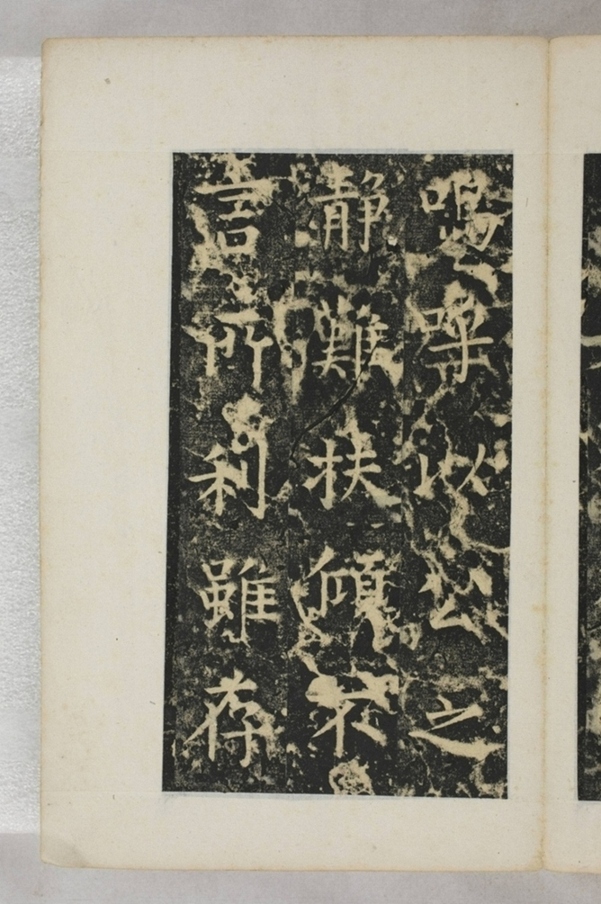 嗚呼以公之
靜難扶傾不
言所利雖存